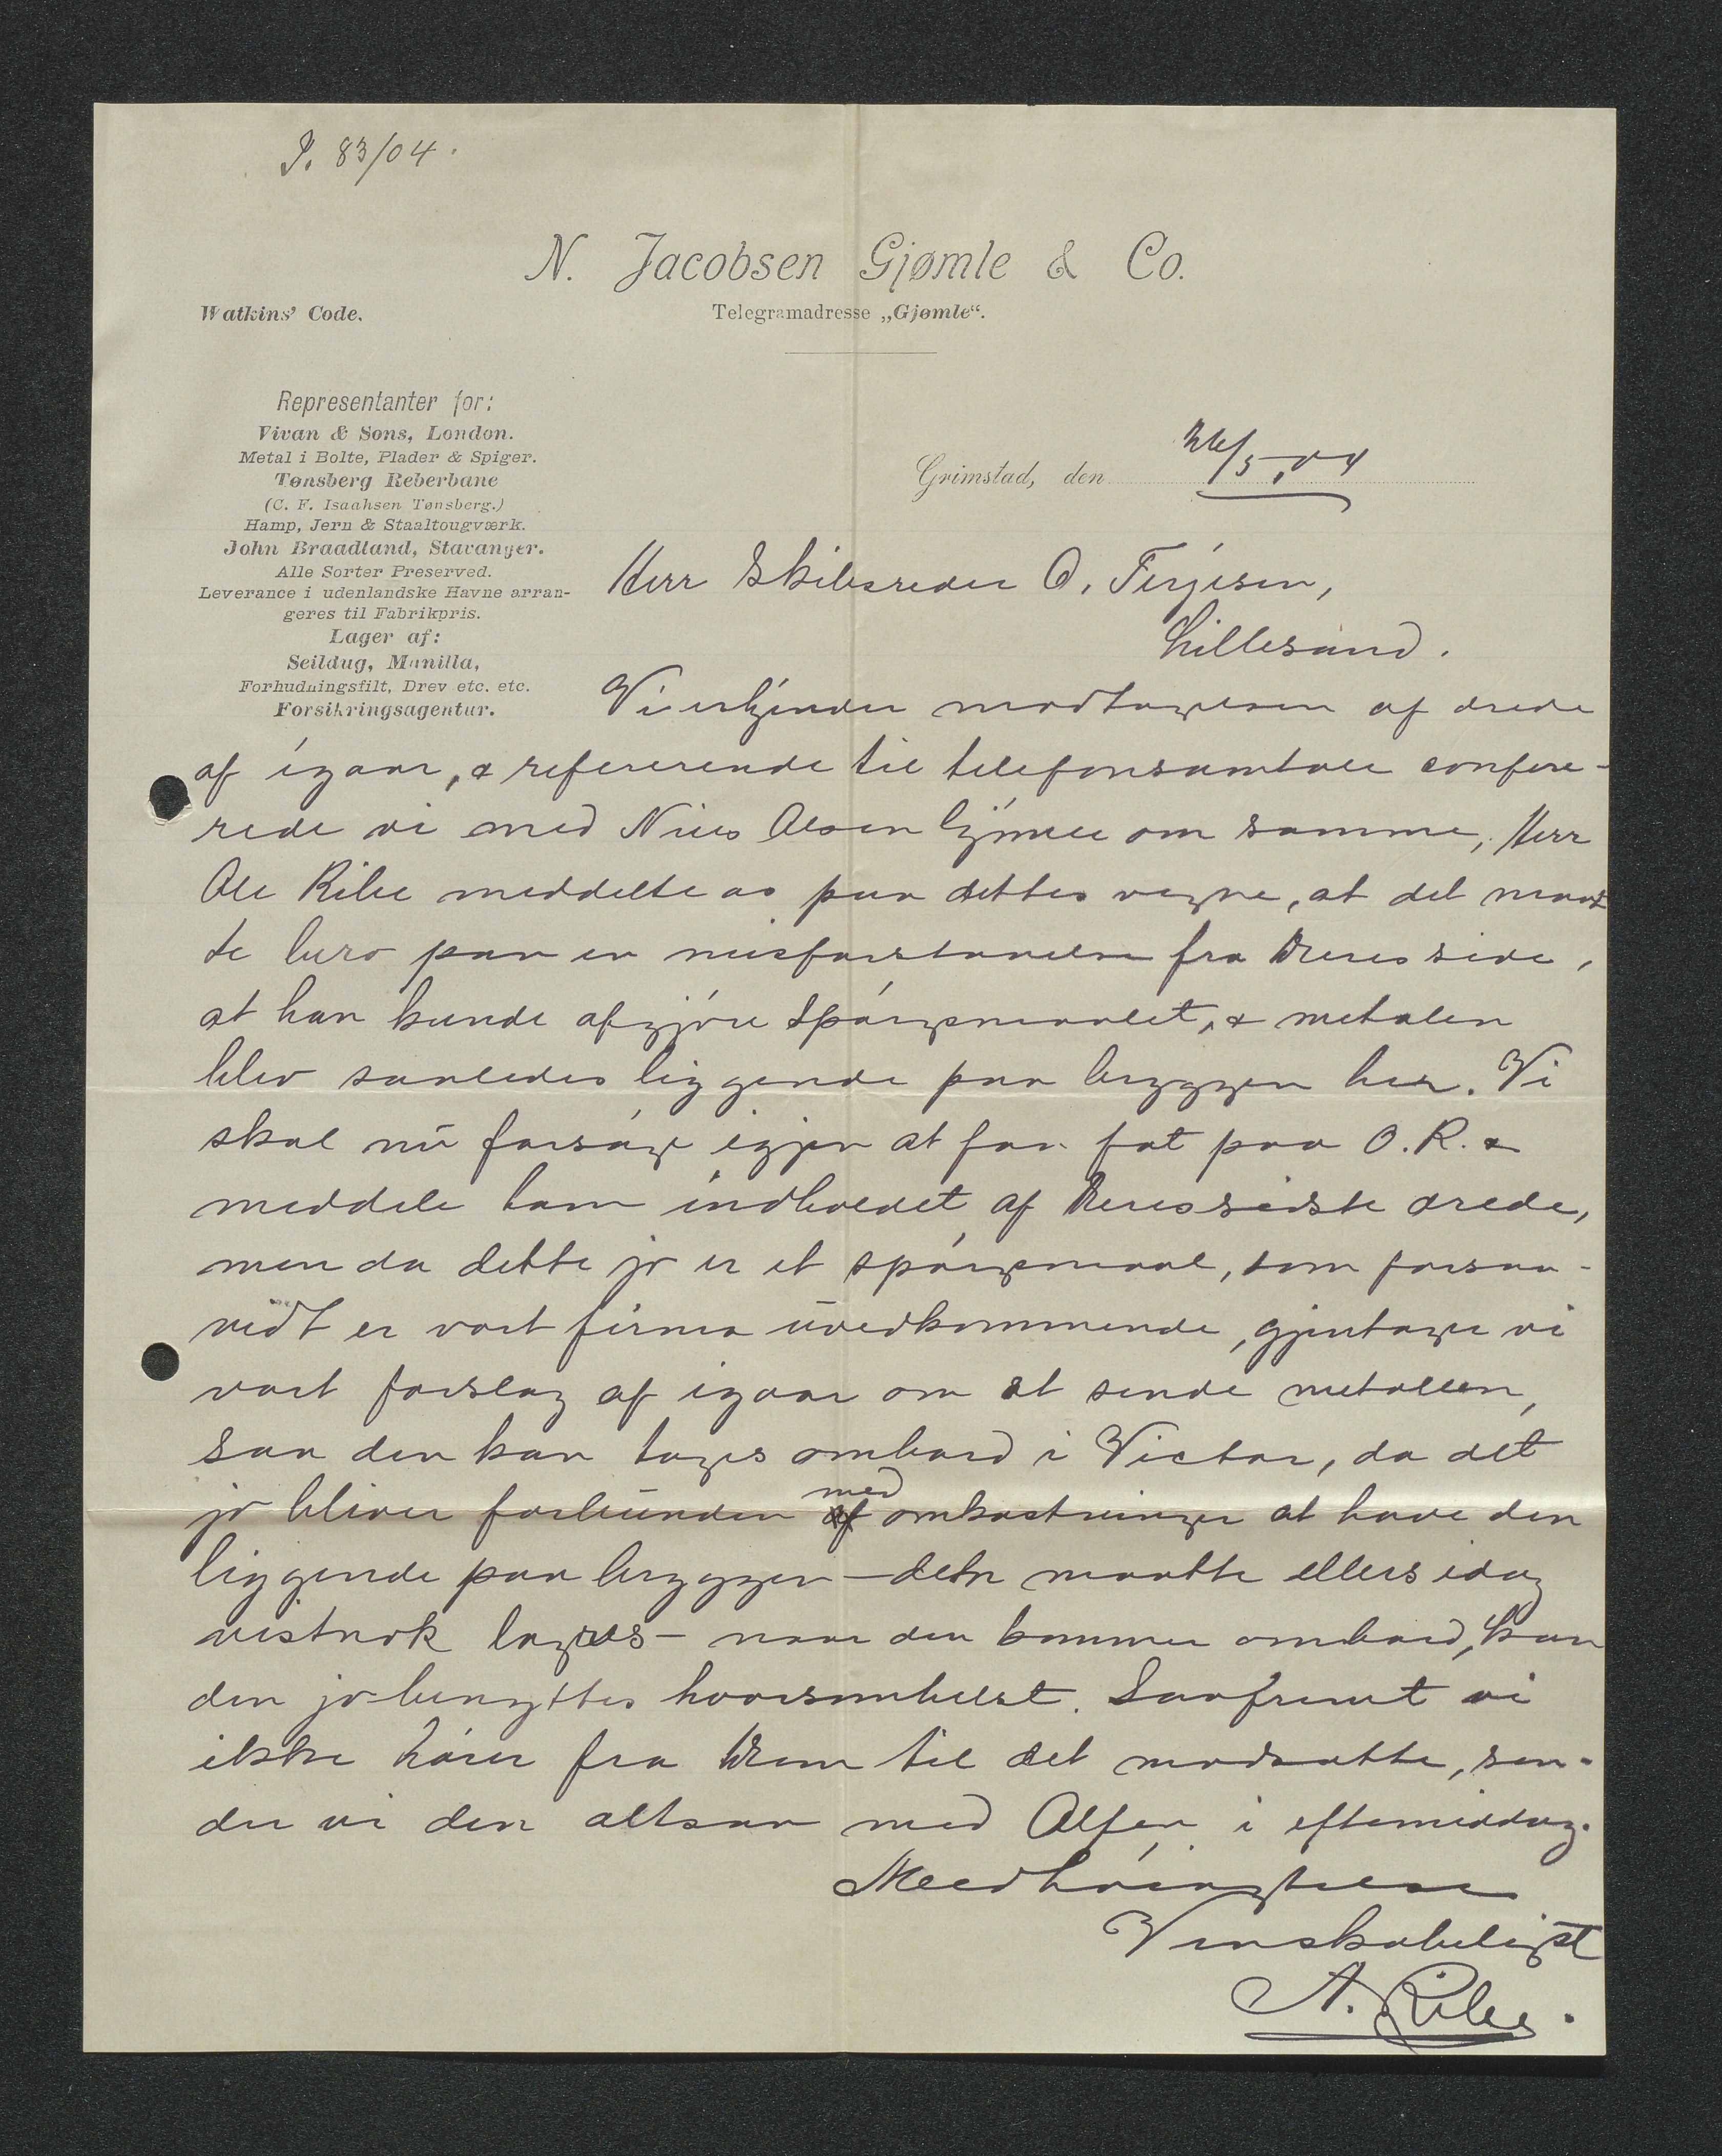 P. 83/04.
N. Jacobsen Gjømle & Co.
Watkins' Code.
Telegramadresse „Gjømle“.
Representanter for:
Vivan & Sons, London.
Metal i Bolte, Plader & Spiger.
Tønsberg Reberbane
(C. F. Isaahsen Tønsberg.)
Hamp, Jern & Staaltougværk.
John Braadland, Stavanger.
Alle Sorter Preserved.
Leverance i udenlandske Havne arran-
geres til Fabrikpris.
Lager af:
Seildug, Manilla,
Forhudningsfilt, Drev etc. etc.
Forsikringsagentur.
Grimstad, den 26/5 04
Herr Skibsreder O. Terjesen,
Lillesand.
Vi erkjender modtagelsen af drede
af igaar, & refererende til telefonsamtale confere-
rede vi med Niels Olsen Gjømle om samme, Herr
Ole Ribe meddelte os paa dettes vegne, at det maat
te bero paa en misforstaaelse fra Deres side,
at han kunde afgjøre spørgsmaalet, & metalen
blev saaledes liggende paa bryggen her. Vi
skal nu forsøge igjen at faa fat paa O. R. &
meddele ham indholdet af Deres sidste drede,
men da dette jo er et spørgsmaal, som forsaa-
vidt er vort firma uvedkommende, gjentager vi
vort forslag af igaar om at sende metallen,
saa den kan tages ombord i Victor, da det
jo bliver forbunden med omkostninger at have den
liggende paa bryggen – den maatte ellers idag
vistnok lagres – naar den kommer ombord, kan
den jo benyttes hvorsomhelst. Saafremt vi
ikke hører fra Dem til det modsatte, sen-
der vi den altsaa med Alfen i eftemiddag.
Med høiagtelse
Venskabeligst
A. Ribe.